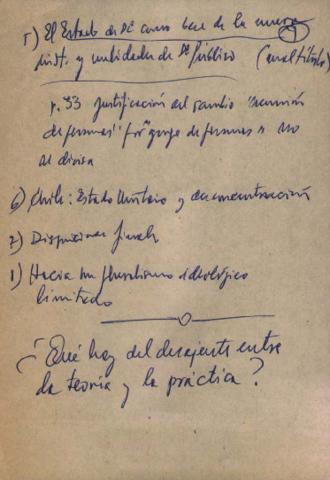 5) El Estado de Dº como base de la nueva
inst. y unidades de Dº público (mal título)
p. 33 Justificación del cambio "reunión
de personas" por "grupo de personas" no
se divisa
6) Chile: Estado Unitario y desconcentración
7) Disposiciones finales
1) Hacia un pluralismo ideológico
limitado
¿Qué hay del desajuste entre
la teoría y la práctica?